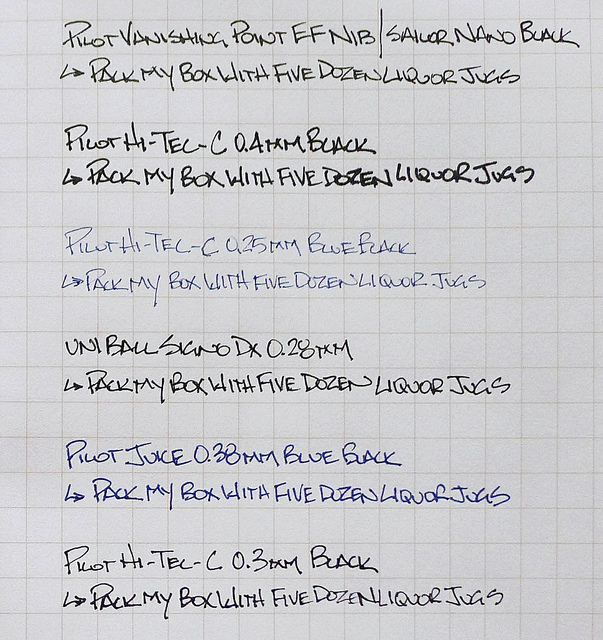 PILOT VANISHING POINT EF NIB | SAILOR NANO BLACK
↳ PACK MY BOX WITH FIVE DOZEN LIQUOR JUGS
PILOT HI-TEC-C 0.4MM BLACK
↳ PACK MY BOX WITH FIVE DOZEN LIQUOR JUGS
PILOT HI-TEC-C 0.25MM BLUE BLACK
↳ PACK MY BOX WITH FIVE DOZEN LIQUOR JUGS
UNI BALL SIGNO DX 0.28MM
↳ PACK MY BOX WITH FIVE DOZEN LIQUOR JUGS
PILOT JUICE 0.38MM BLUE BLACK
↳ PACK MY BOX WITH FIVE DOZEN LIQUOR JUGS
PILOT HI-TEC-C 0.3MM BLACK
↳ PACK MY BOX WITH FIVE DOZEN LIQUOR JUGS